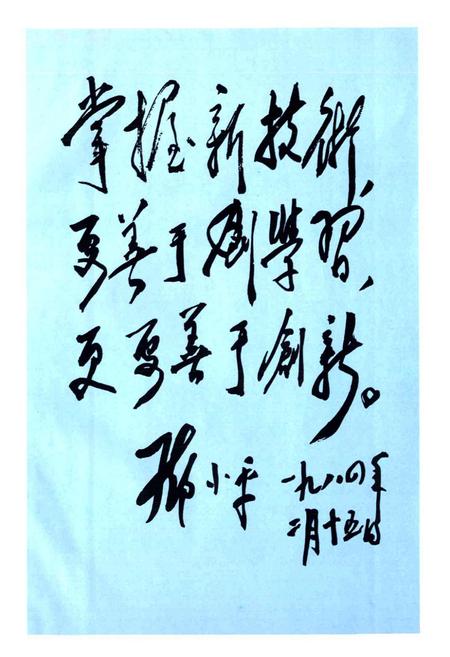 掌握新技術、
要善于學習、
更要善于創新。
邓小平 一九八四年
二月十五日